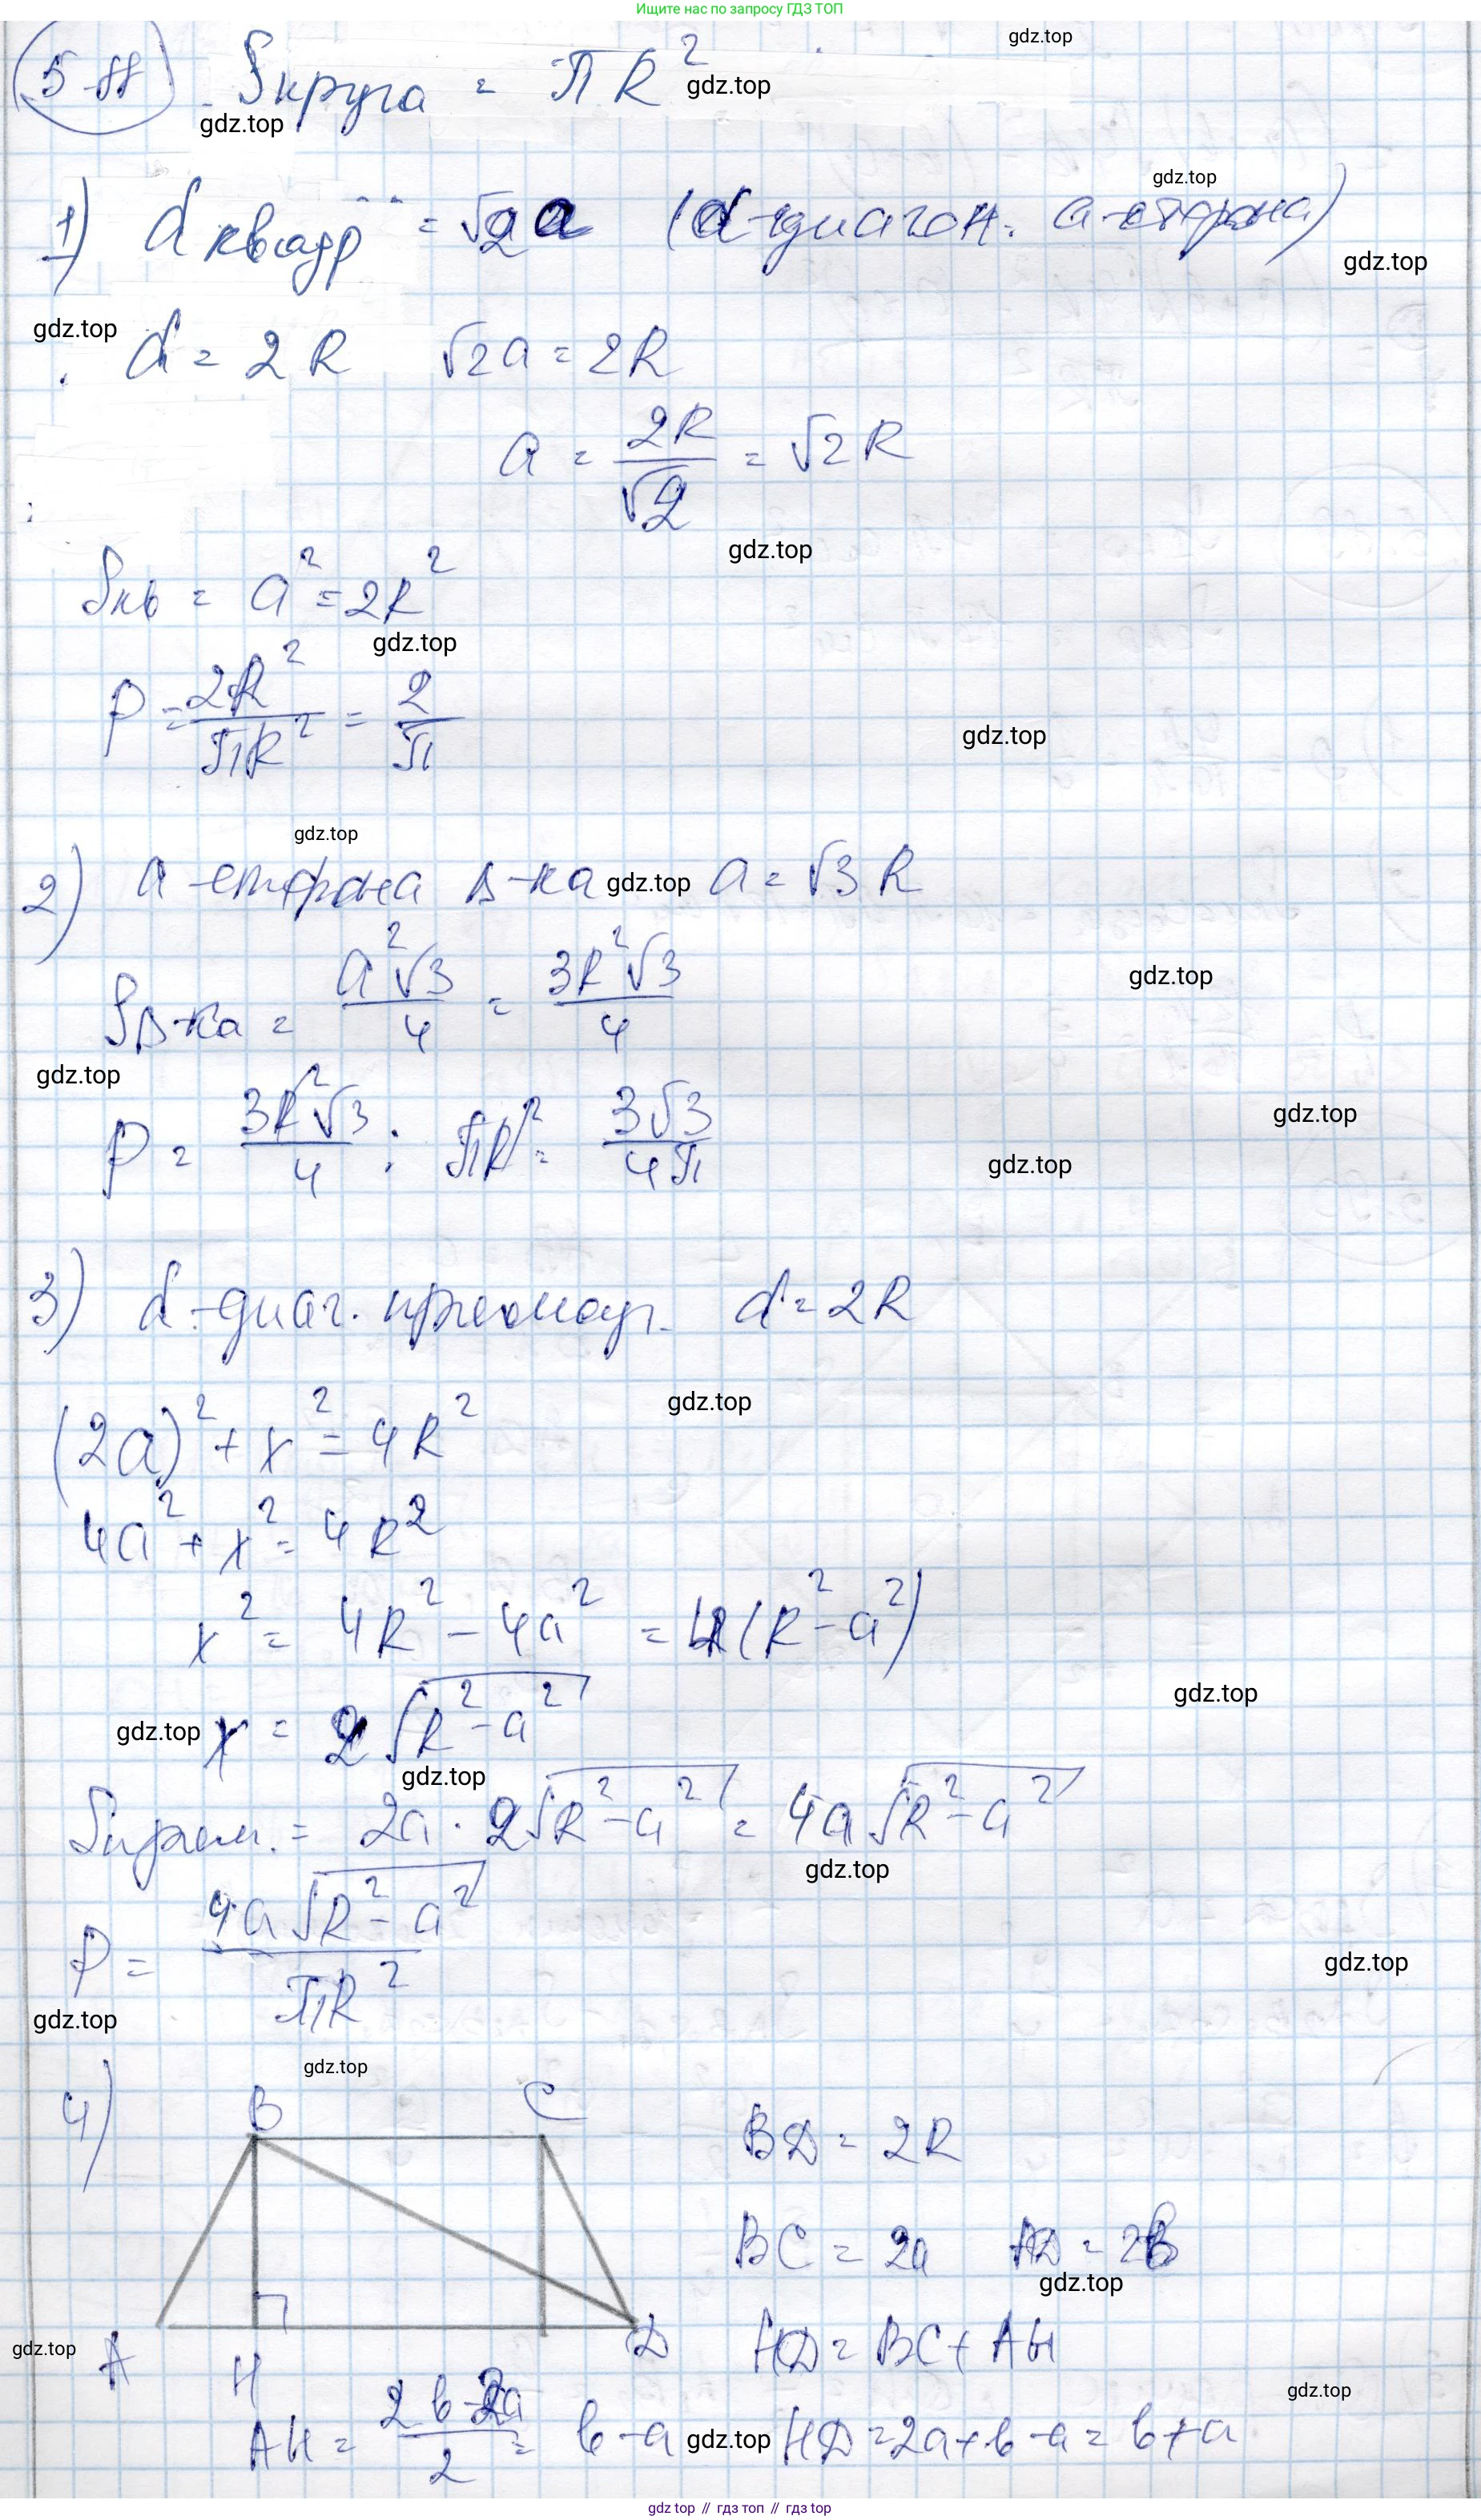 Ищите нас по запросу ГДЗ ТОП
gdz.top
5.88 Sкруга = πR²
gdz.top
gdz.top
gdz.top
1) d квадр = √2a (d-диагон. a-сторона)
gdz.top
gdz.top
d = 2R √2a = 2R
a = 2R/√2 = √2R
gdz.top
Sкв = a² = 2R²
gdz.top
P = 2R²/πR² = 2/π
gdz.top
gdz.top
2) a-сторона Δ-ка gdz.top a = √3R
SΔ-ка = a²√3/4 = 3R²√3/4
gdz.top
gdz.top
P = 3R²√3/4 : πR² = 3√3/4π
gdz.top
gdz.top
3) d-диаг. прямоуг. d = 2R
gdz.top
(2a)² + x² = 4R²
4a² + x² = 4R²
x² = 4R² - 4a² = 4(R² - a²)
gdz.top
gdz.top x = 2√R² - a²
gdz.top
Sпрям. = 2a · 2√R² - a² = 4a√R² - a²
gdz.top
P = 4a√R² - a²/πR²
gdz.top
gdz.top
gdz.top
4) B C
BD = 2R
BC = 2a AD = 2b
gdz.top
A H D
HD = BC + AH
gdz.top
gdz.top
AH = 2b-2a/2 = b-a gdz.top HD = 2a+b-a = b+a
gdz top // гдз топ // гдз top